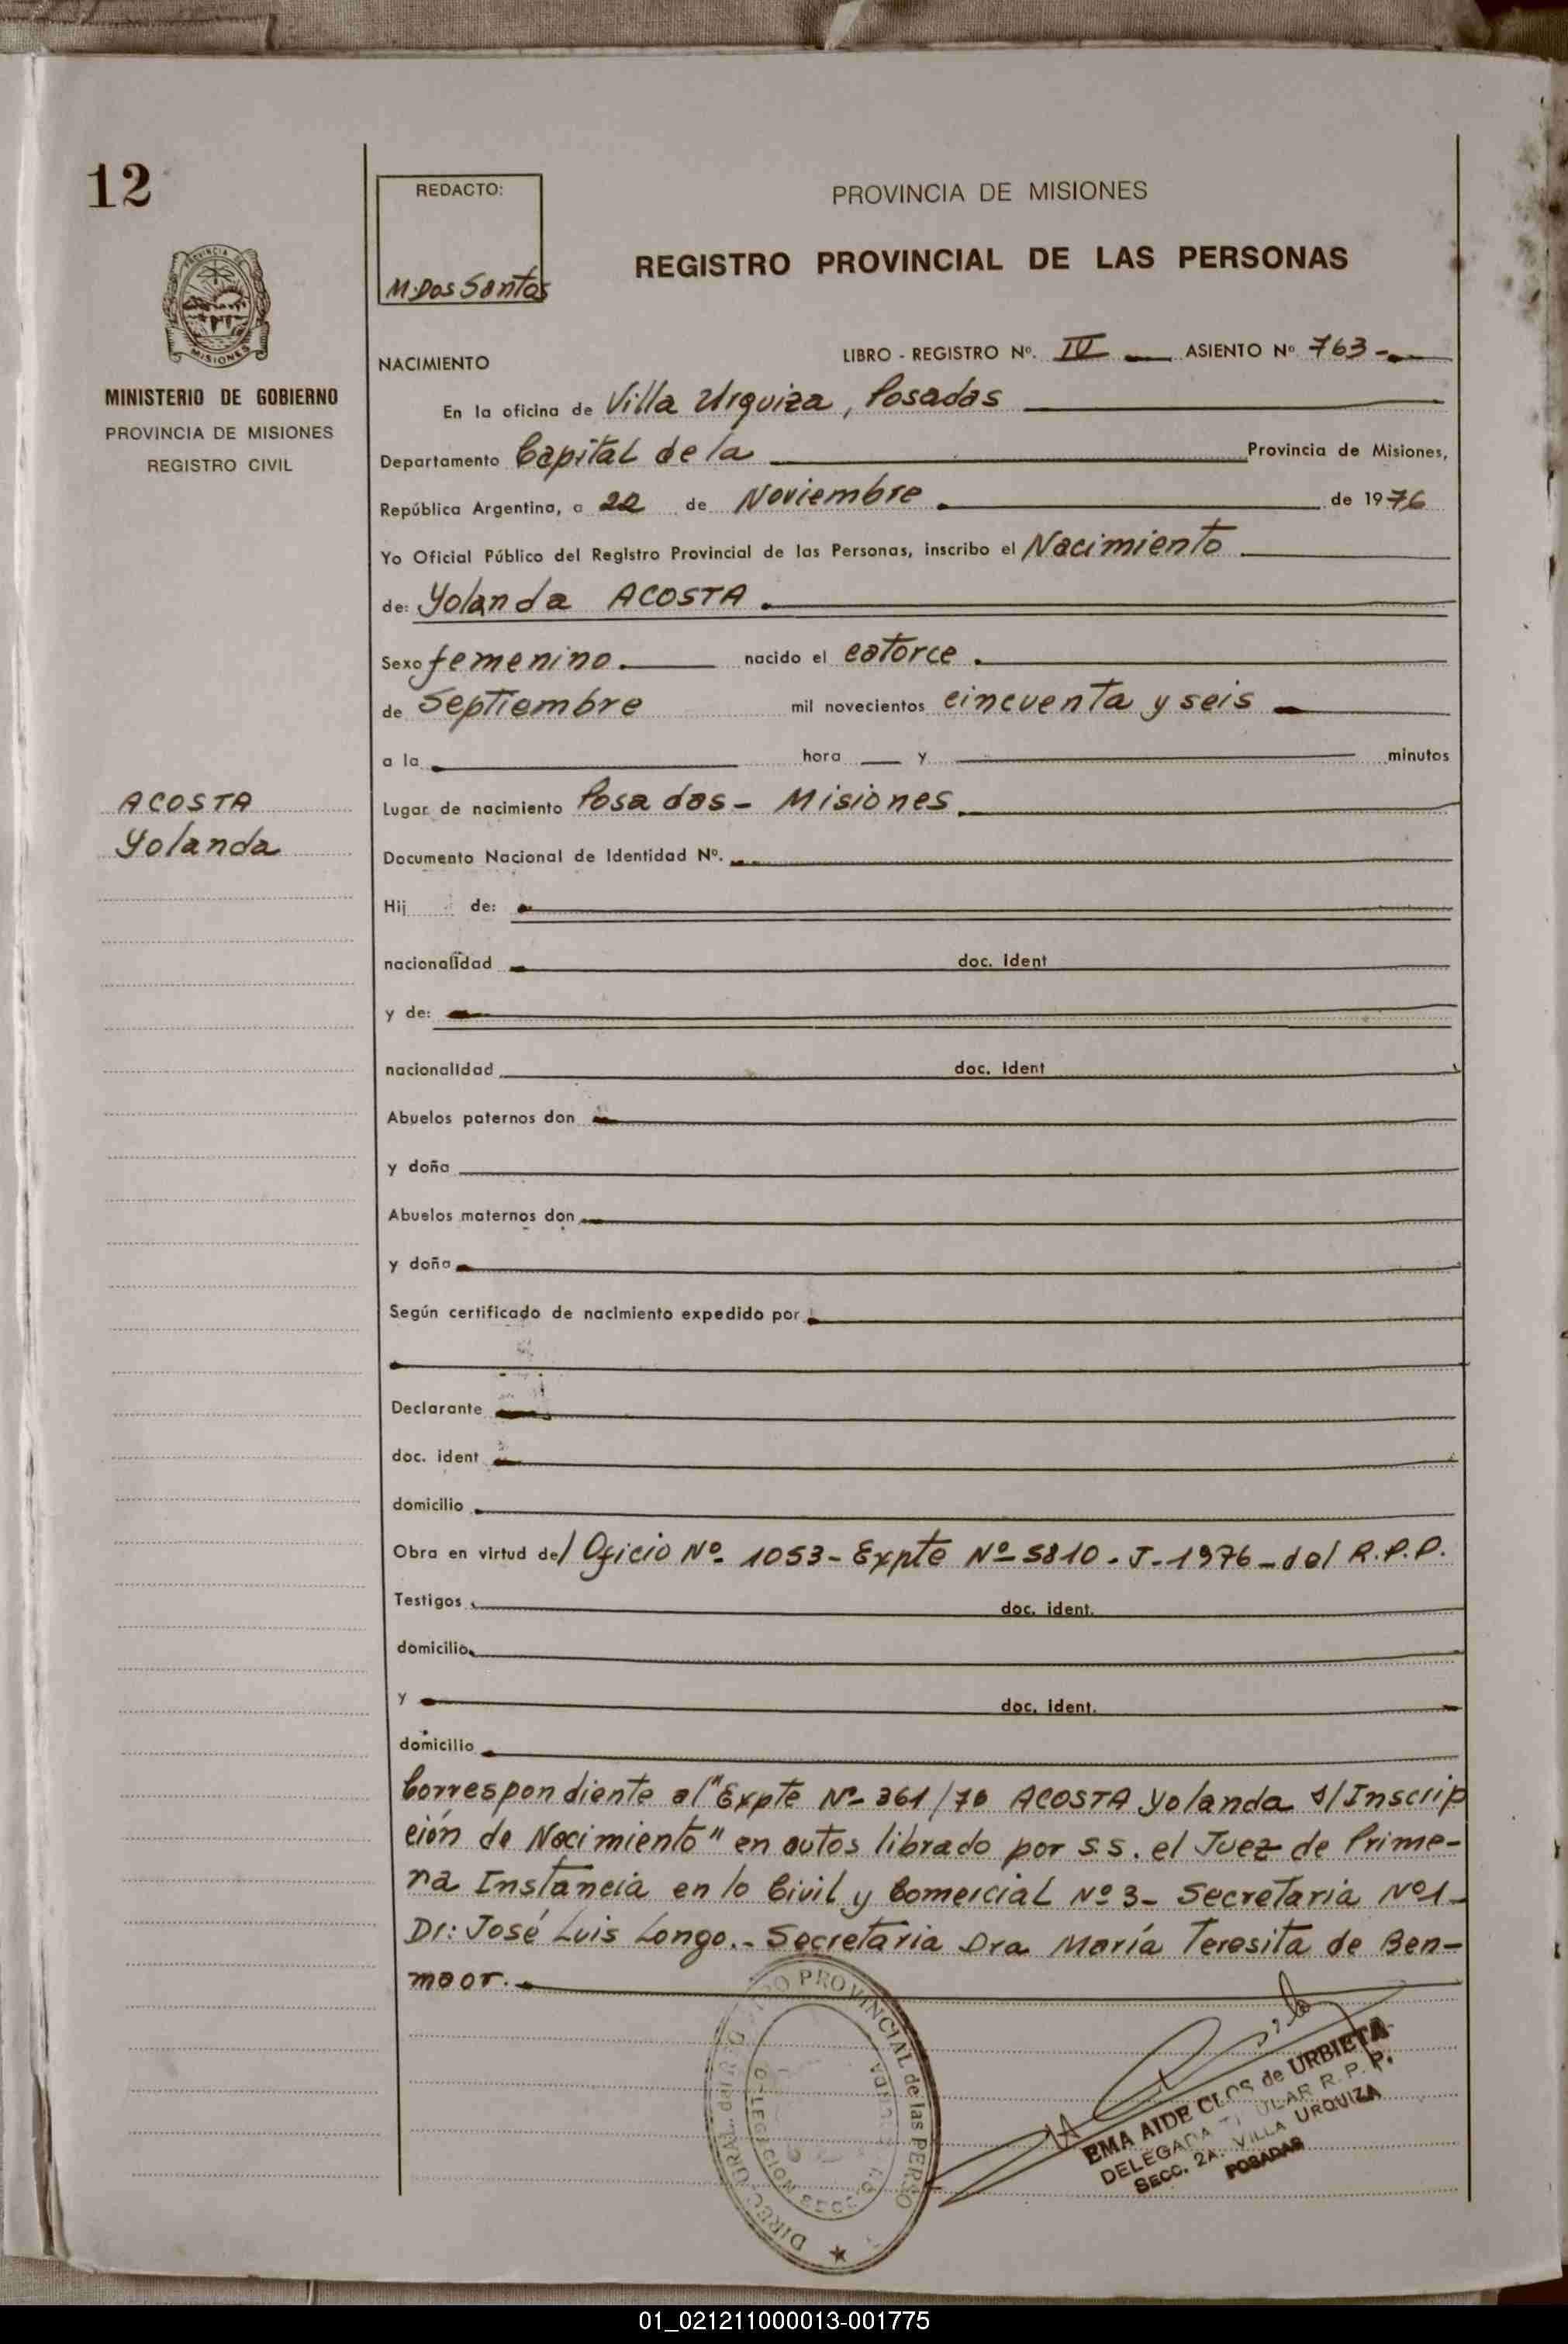 12
REDACTO:
M. Dos Santos
PROVINCIA DE MISIONES
REGISTRO PROVINCIAL DE LAS PERSONAS
PROVINCIA DE
MISIONES
MINISTERIO DE GOBIERNO
PROVINCIA DE MISIONES
REGISTRO CIVIL
NACIMIENTO
LIBRO - REGISTRO Nº. IV ASIENTO Nº 763-
En la oficina de Villa Urquiza, Posadas
Departamento Capital de la Provincia de Misiones,
República Argentina, a 22 de Noviembre de 1976
Yo Oficial Público del Registro Provincial de las Personas, inscribo el Nacimiento
de: Yolanda ACOSTA.
Sexo femenino. nacido el catorce.
de Septiembre mil novecientos cincuenta y seis
a la hora y minutos
ACOSTA
Yolanda
Lugar de nacimiento Posadas - Misiones
Documento Nacional de Identidad Nº.
Hij de:
nacionalidad doc. ident
y de:
nacionalidad doc. ident
Abuelos paternos don
y doña
Abuelos maternos don
y doña
Según certificado de nacimiento expedido por
Declarante
doc. ident
domicilio
Obra en virtud del Oficio Nº. 1053- Expte Nº 5810. J-1976-del R.P.P.
Testigos doc. ident.
domicilio
y doc. ident.
domicilio
Correspondiente al "Expte Nº 361/76 ACOSTA Yolanda s/Inscrip
ción de Nacimiento" en autos librado por S.S. el Juez de Prime-
ra Instancia en lo Civil y Comercial Nº 3- Secretaria Nº1-
Dr: José Luis Longo.- Secretaria Dra María Teresita de Ben-
maor.
PROVINCIAL de las PERSO
EMA AIDE CLOS de URBIETA
DELEGADA TITULAR R. P. P.
SECC. 2A. VILLA URQUIZA
POSADAS
01_021211000013-001775